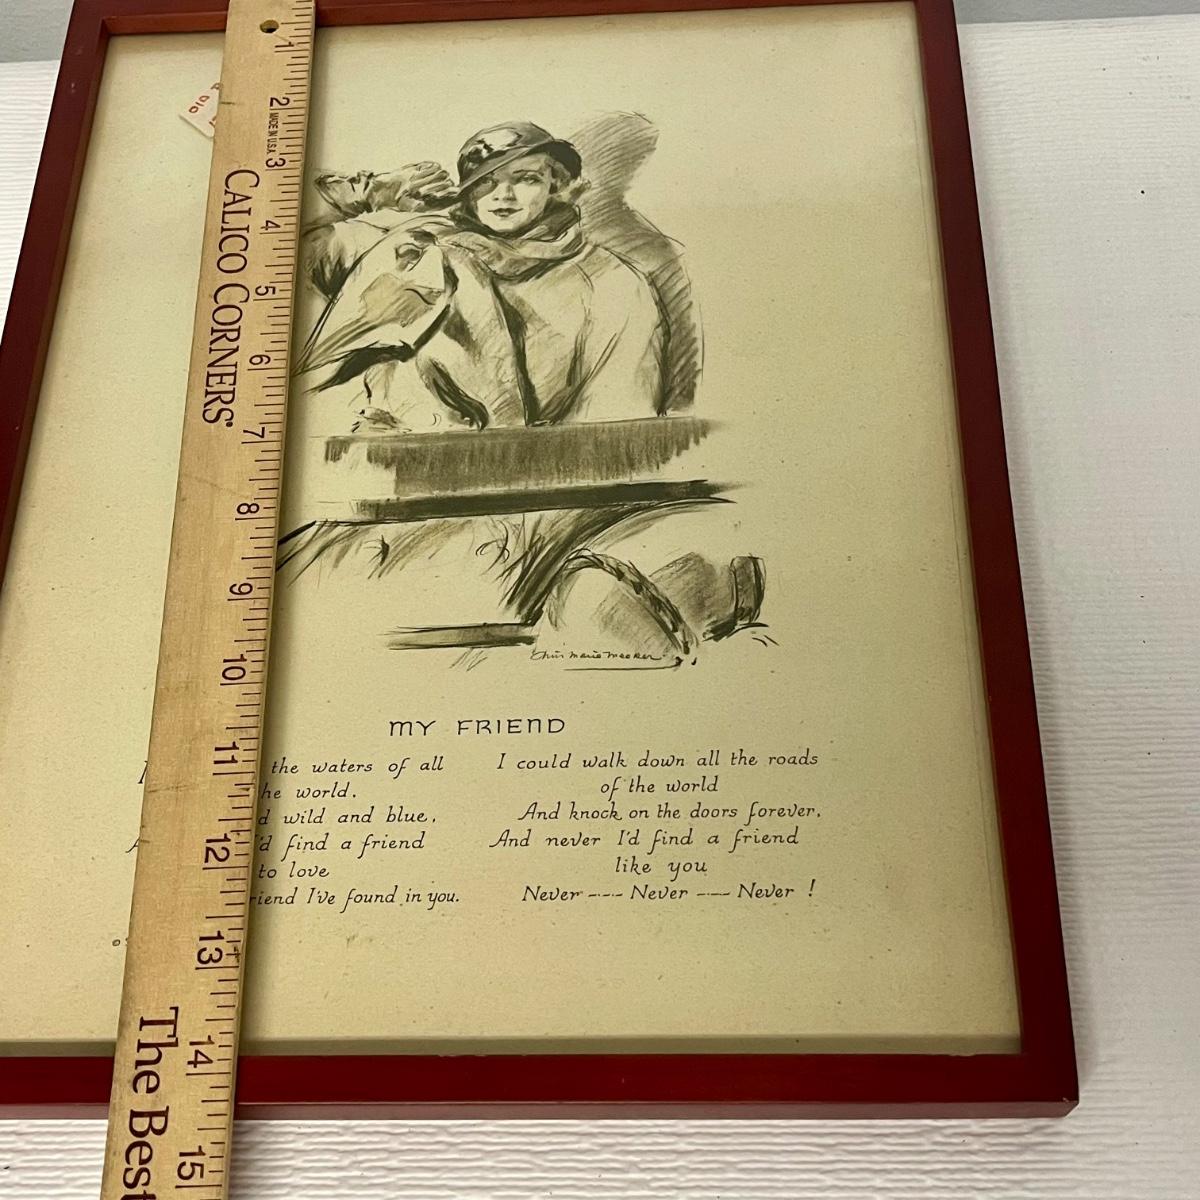 1
2
MADE IN U.S.A.
3
CALICO CORNERS
4
5
6
7
8
9
10
11
12
13
14
The Best
15
OLD
Chris Marie Meeker
MY FRIEND
I the waters of all
he world.
d wild and blue,
A 'd find a friend
to love
riend I've found in you.
I could walk down all the roads
of the world
And knock on the doors forever,
And never I'd find a friend
like you
Never ---- Never ---- Never !
©